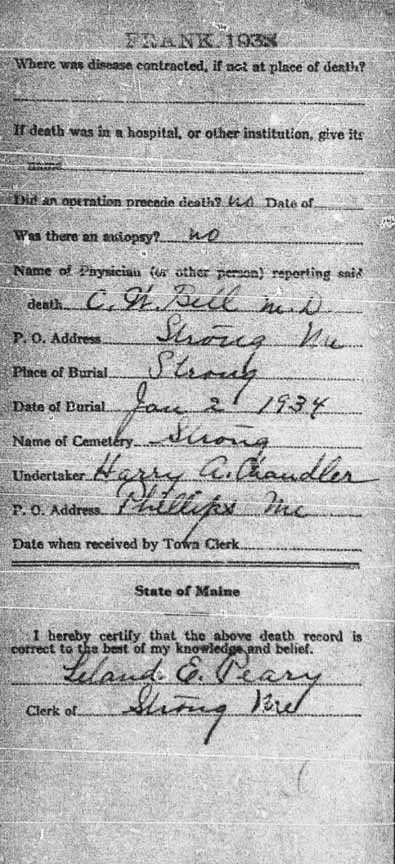 FRANK 1938
Where was disease contracted, if not at place of death?
If death was in a hospital, or other institution, give its
name
Did an operation precede death? no Date of
Was there an autopsy? no
Name of Physician (or other person) reporting said
death C. W. Bell M.D.
P. O. Address Strong Me
Place of Burial Strong
Date of Burial Jan 2 1934
Name of Cemetery Strong
Undertaker Harry A. Chandler
P. O. Address Phillips Me
Date when received by Town Clerk
State of Maine
I hereby certify that the above death record is
correct to the best of my knowledge and belief.
Leland E. Peary
Clerk of Strong Me